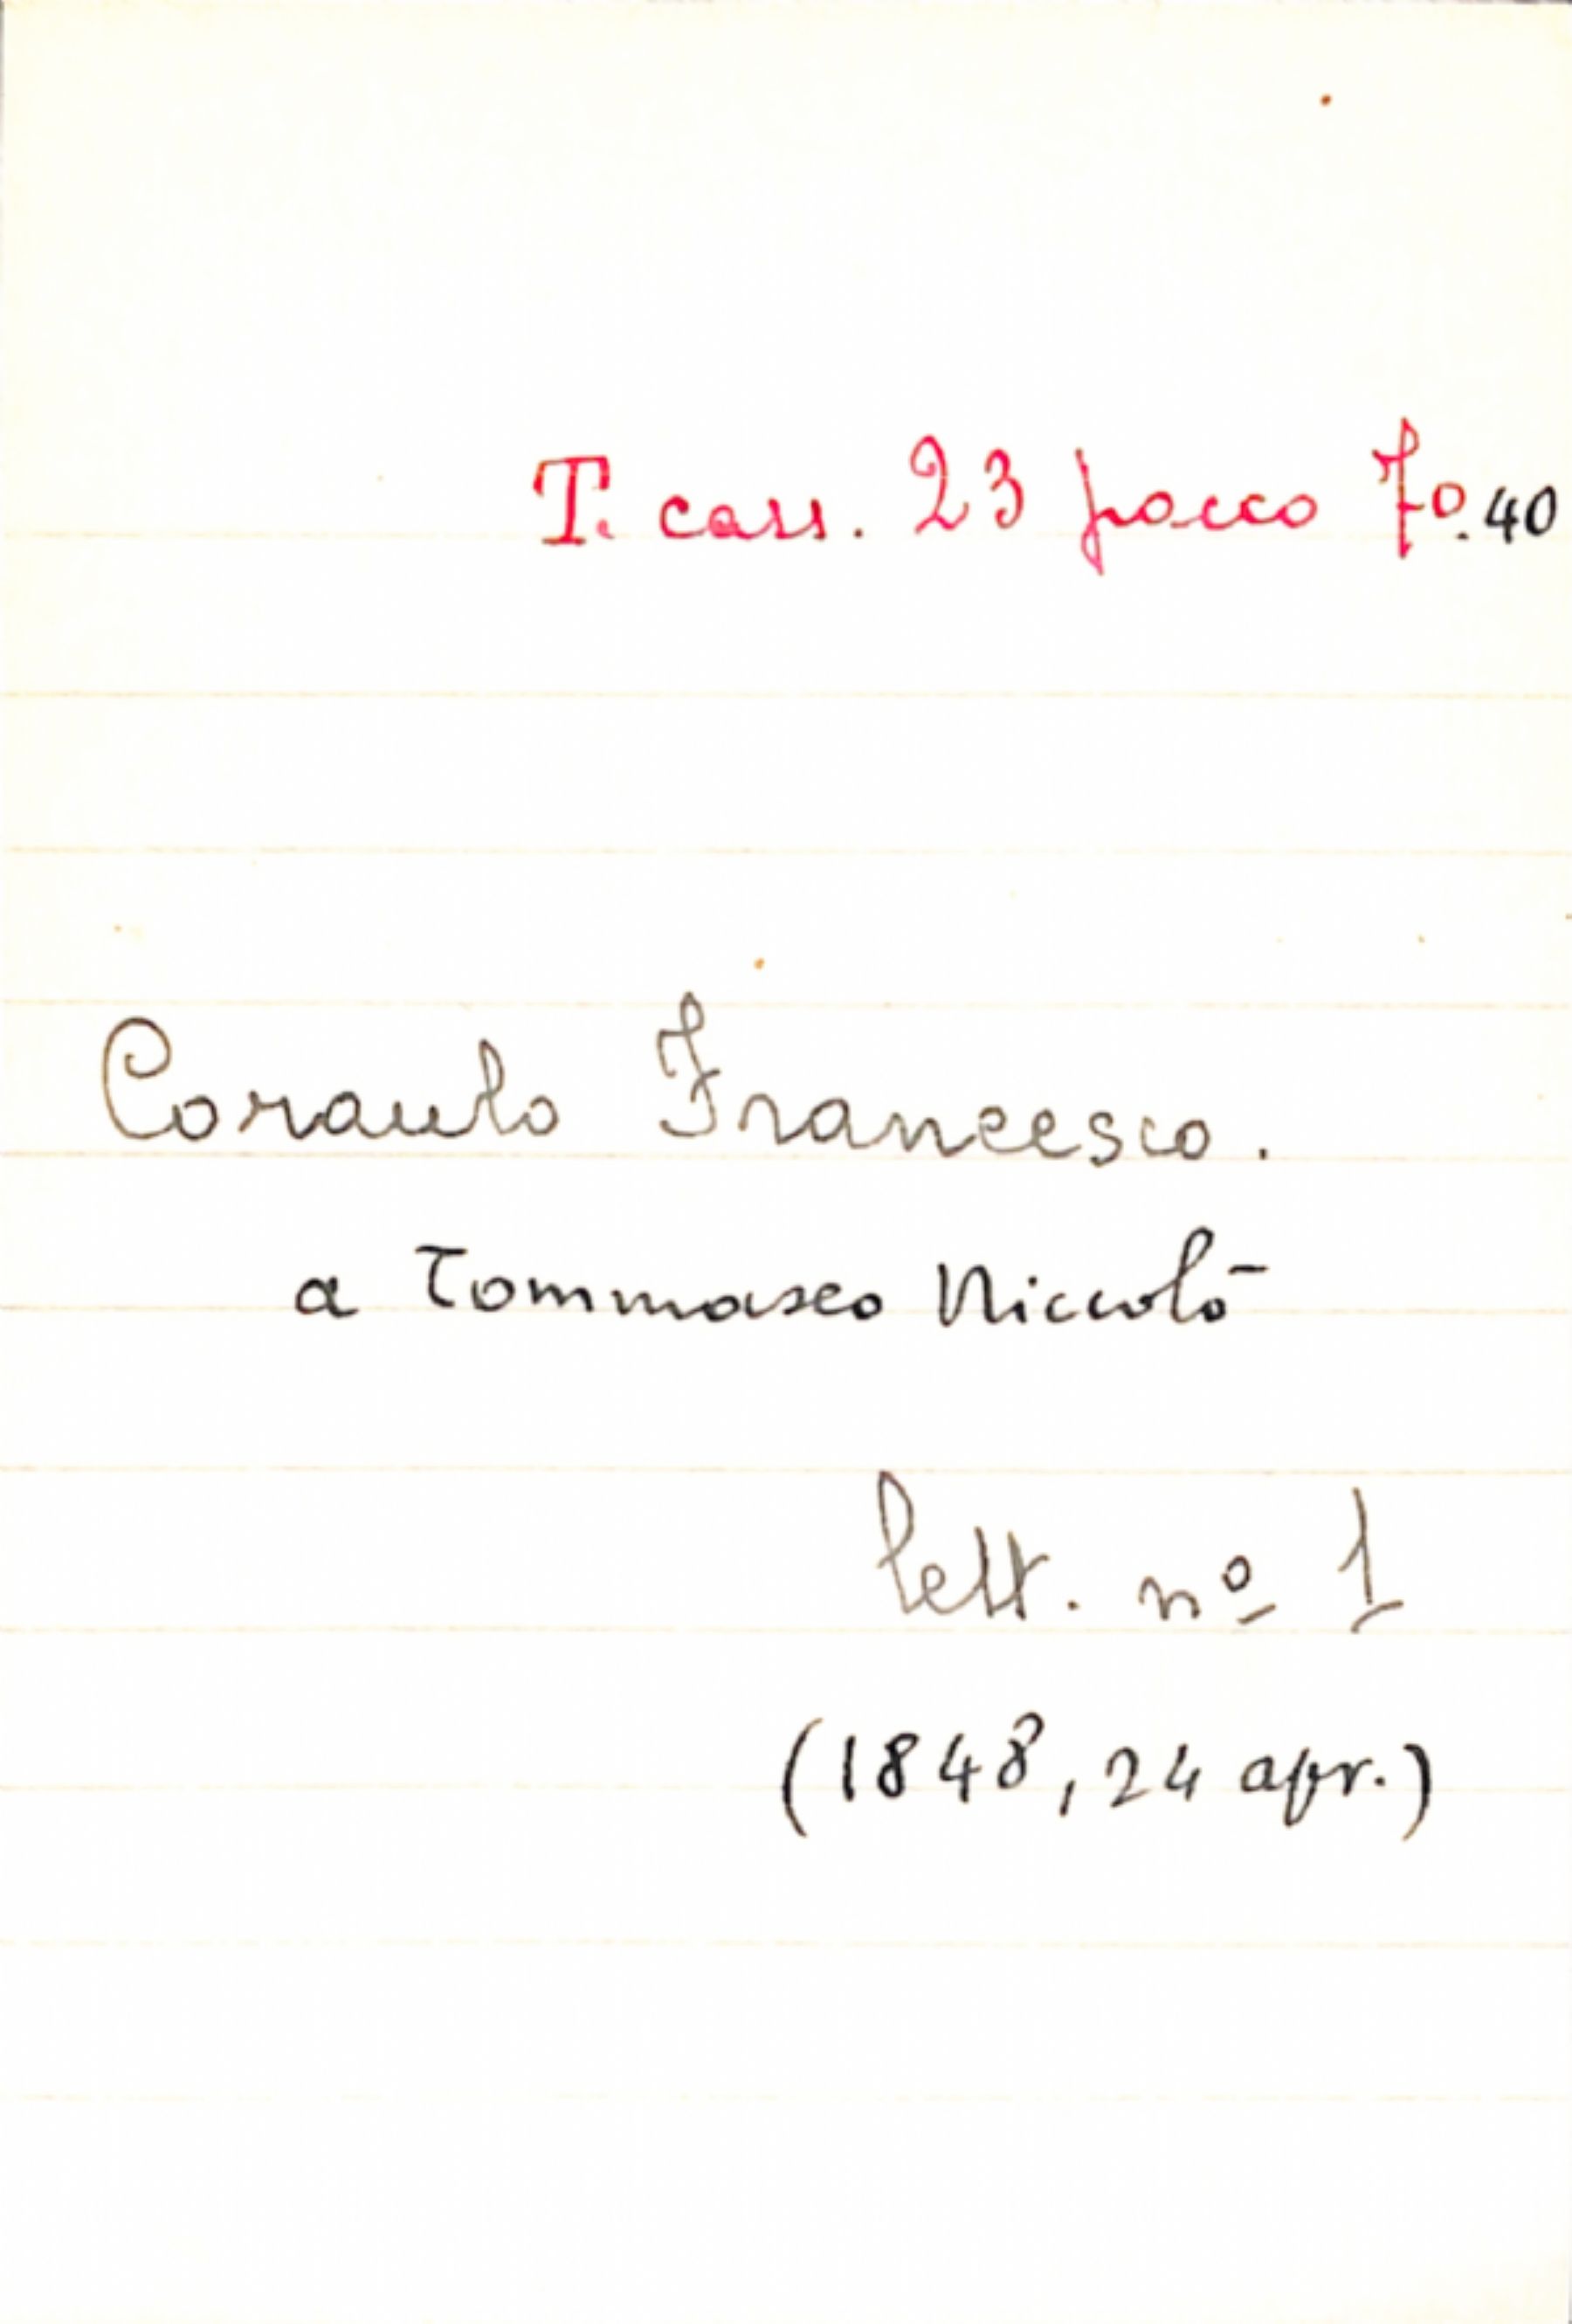 T. cass. 23 pacco 7º.40
Coraulo Francesco.
a Tommaseo Niccolò
lett. nº 1
(1848, 24 apr.)